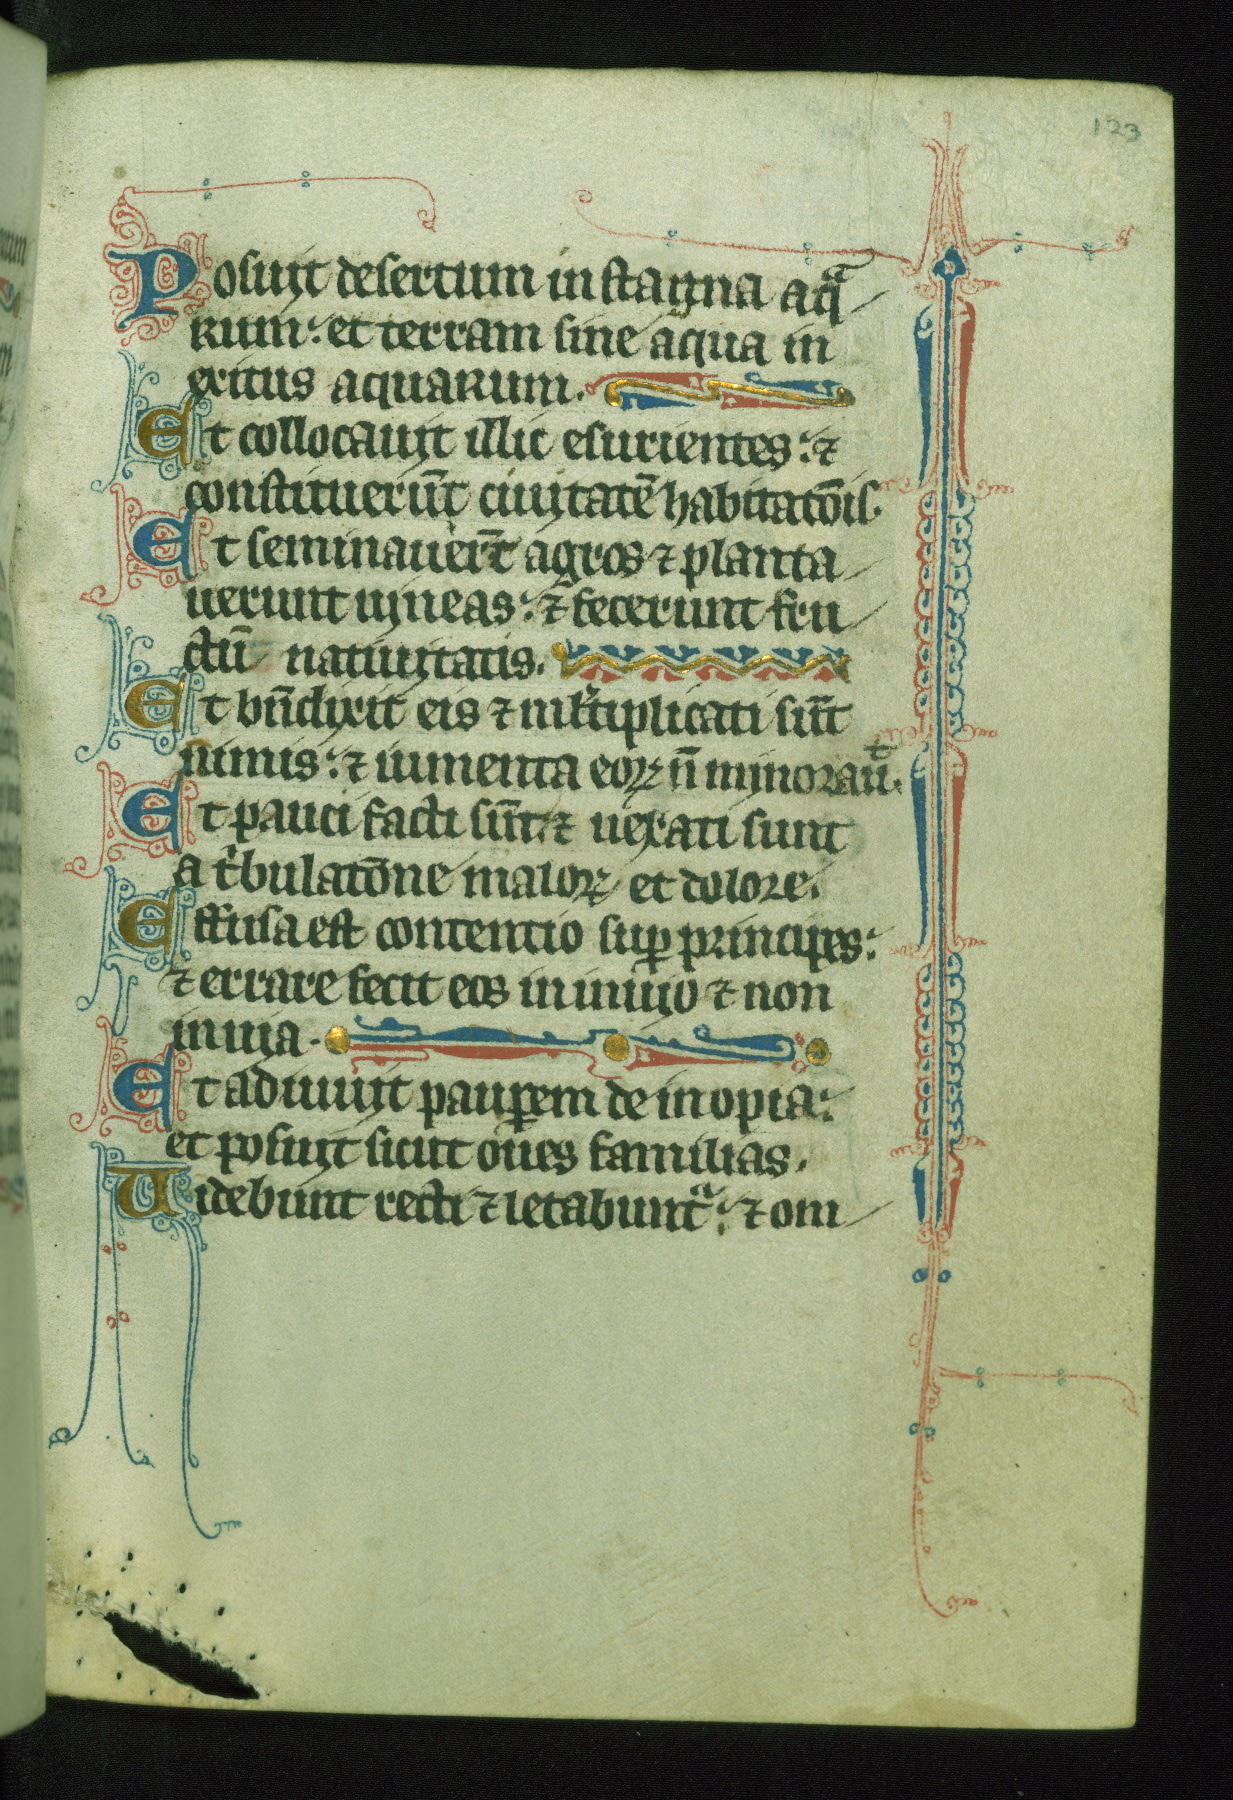 123
Posuit desertum in stagna aqᷓ
rum: et terram sine aqua in
exitus aquarum.
Et collocauit illic esurientes: ⁊
constituerūt ciuitatē habitatōis.
Et seminauer̄t agros ⁊ planta
uerunt uineas: ⁊ fecerunt fru
ctū natiuitatis.
Et bn̄dixit eis ⁊ ml̓tiplicati sūt
nimis: ⁊ iumenta eoꝝ n̄ minorauᷓ.
Et pauci facti sūt: ⁊ uexati sunt
a tͥbulatōne maloꝝ et dolore.
Effusa est contentio suꝑ principes:
⁊ errare fecit eos in inuio ⁊ non
in uia.
Et adiuuit pauꝑem de inopia:
et posuit sicut oues familias.
Videbunt recti ⁊ letabuntᷓ: ⁊ om